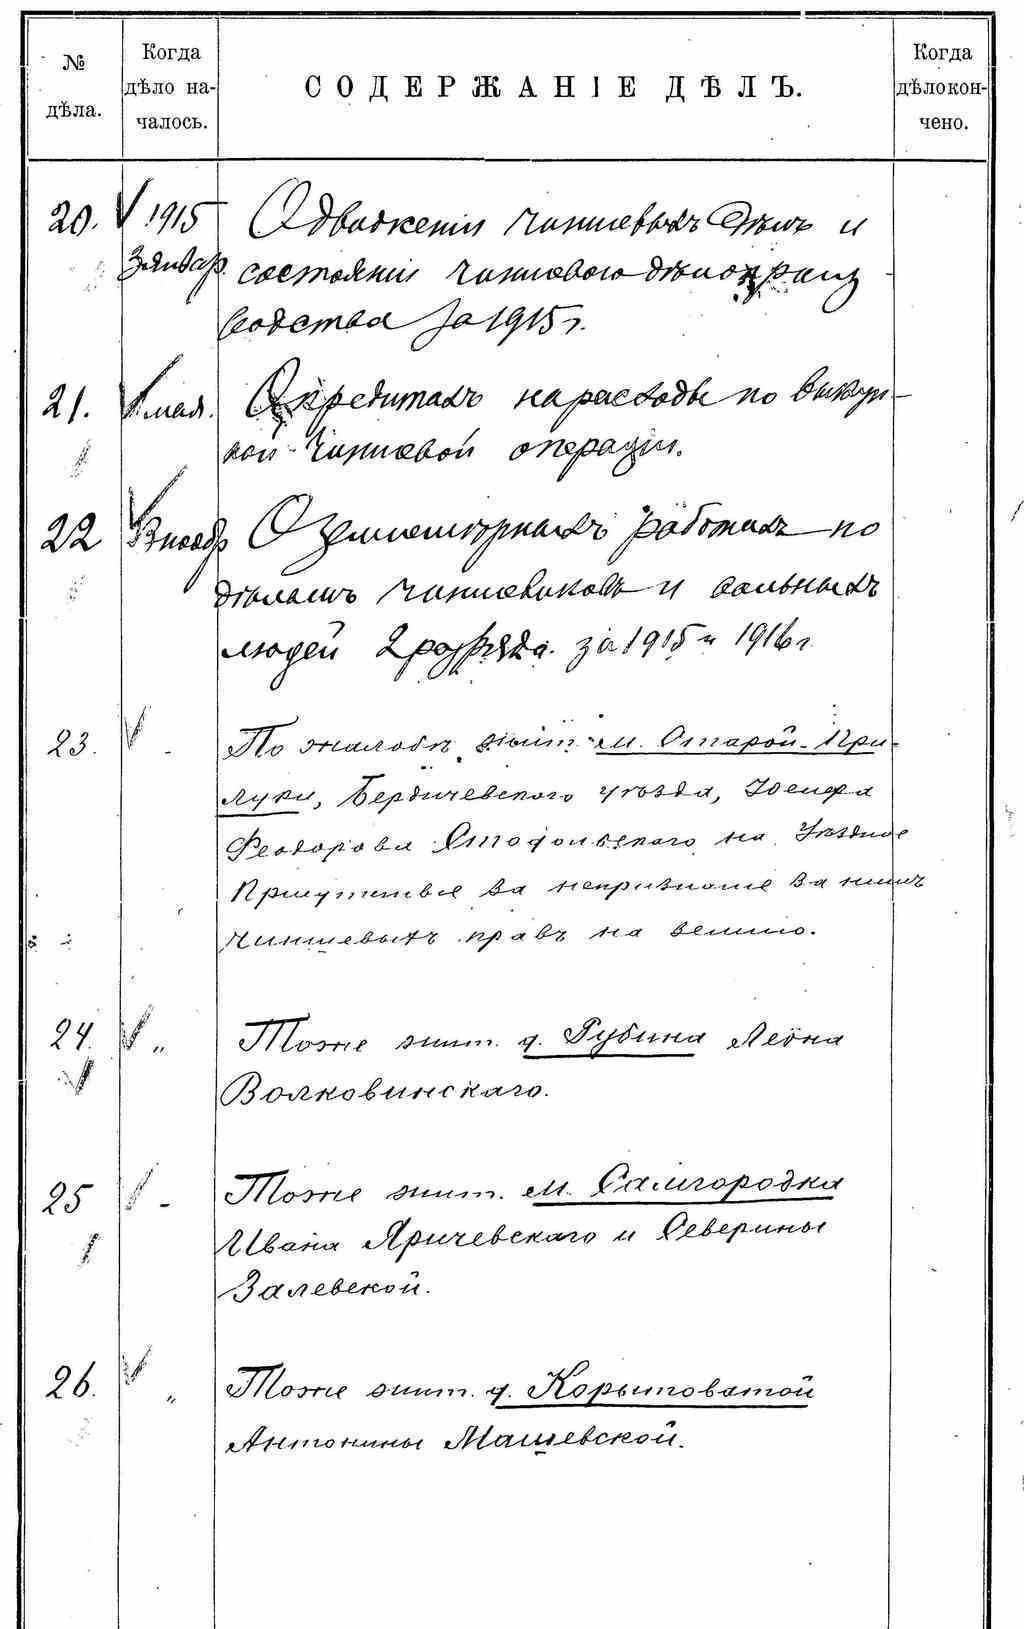 № дѣла.
Когда дѣло на-
чалось.
СОДЕРЖАНІЕ ДѢЛЪ.
Когда дѣло кон-
чено.
20. 1915 О движеніи чиншевыхъ дѣлъ и
3 январ. состояніи чиншевого дѣлопроиз
водства за 1915 г.
21. мая. О кредитахъ на расходы по выкуп-
ной чиншевой операціи.
22 3 ноябр О землемѣрныхъ работахъ по
дѣламъ чиншевиковъ и вольныхъ
людей 2 разряда за 1915 и 1916 г.
23. - По жалобѣ жит. м. Старой-При-
луки, Бердичевскаго уѣзда, Іосифа
Феодорова на Уѣздное
Присутствіе за непризнаніе за нимъ
чиншевыхъ правъ на землю.
24. „ Тоже жит. д. Рубина Леона
Волковинскаго.
25 - Тоже жит. м. Самгородка
Ивана Яричевскаго и Северины
Залевской.
26. „ Тоже жит. д. Корытоватой
Антонины Машевской.